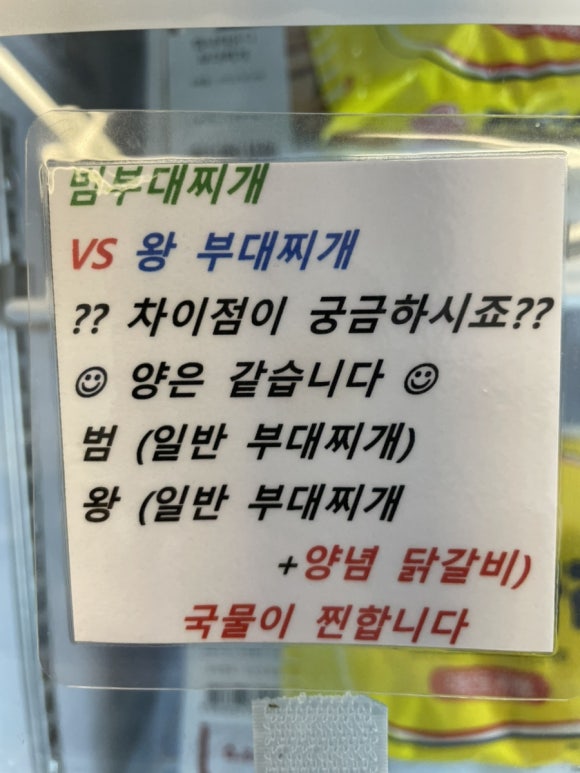 범부대찌개
VS 왕 부대찌개
?? 차이점이 궁금하시죠??
☺ 양은 같습니다 ☺
범 (일반 부대찌개)
왕 (일반 부대찌개
+양념 닭갈비)
국물이 찐합니다